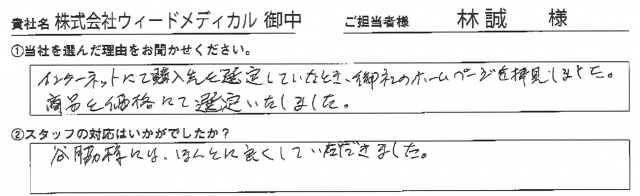 貴社名 株式会社ウィードメディカル 御中 ご担当者様 林誠 様
①当社を選んだ理由をお聞かせください。
インターネットにて購入先を選定していたとき、御社のホームページを拝見しました。
商品と価格にて選定いたしました。
②スタッフの対応はいかがでしたか？
谷脇様には、ほんとに良くしていただきました。